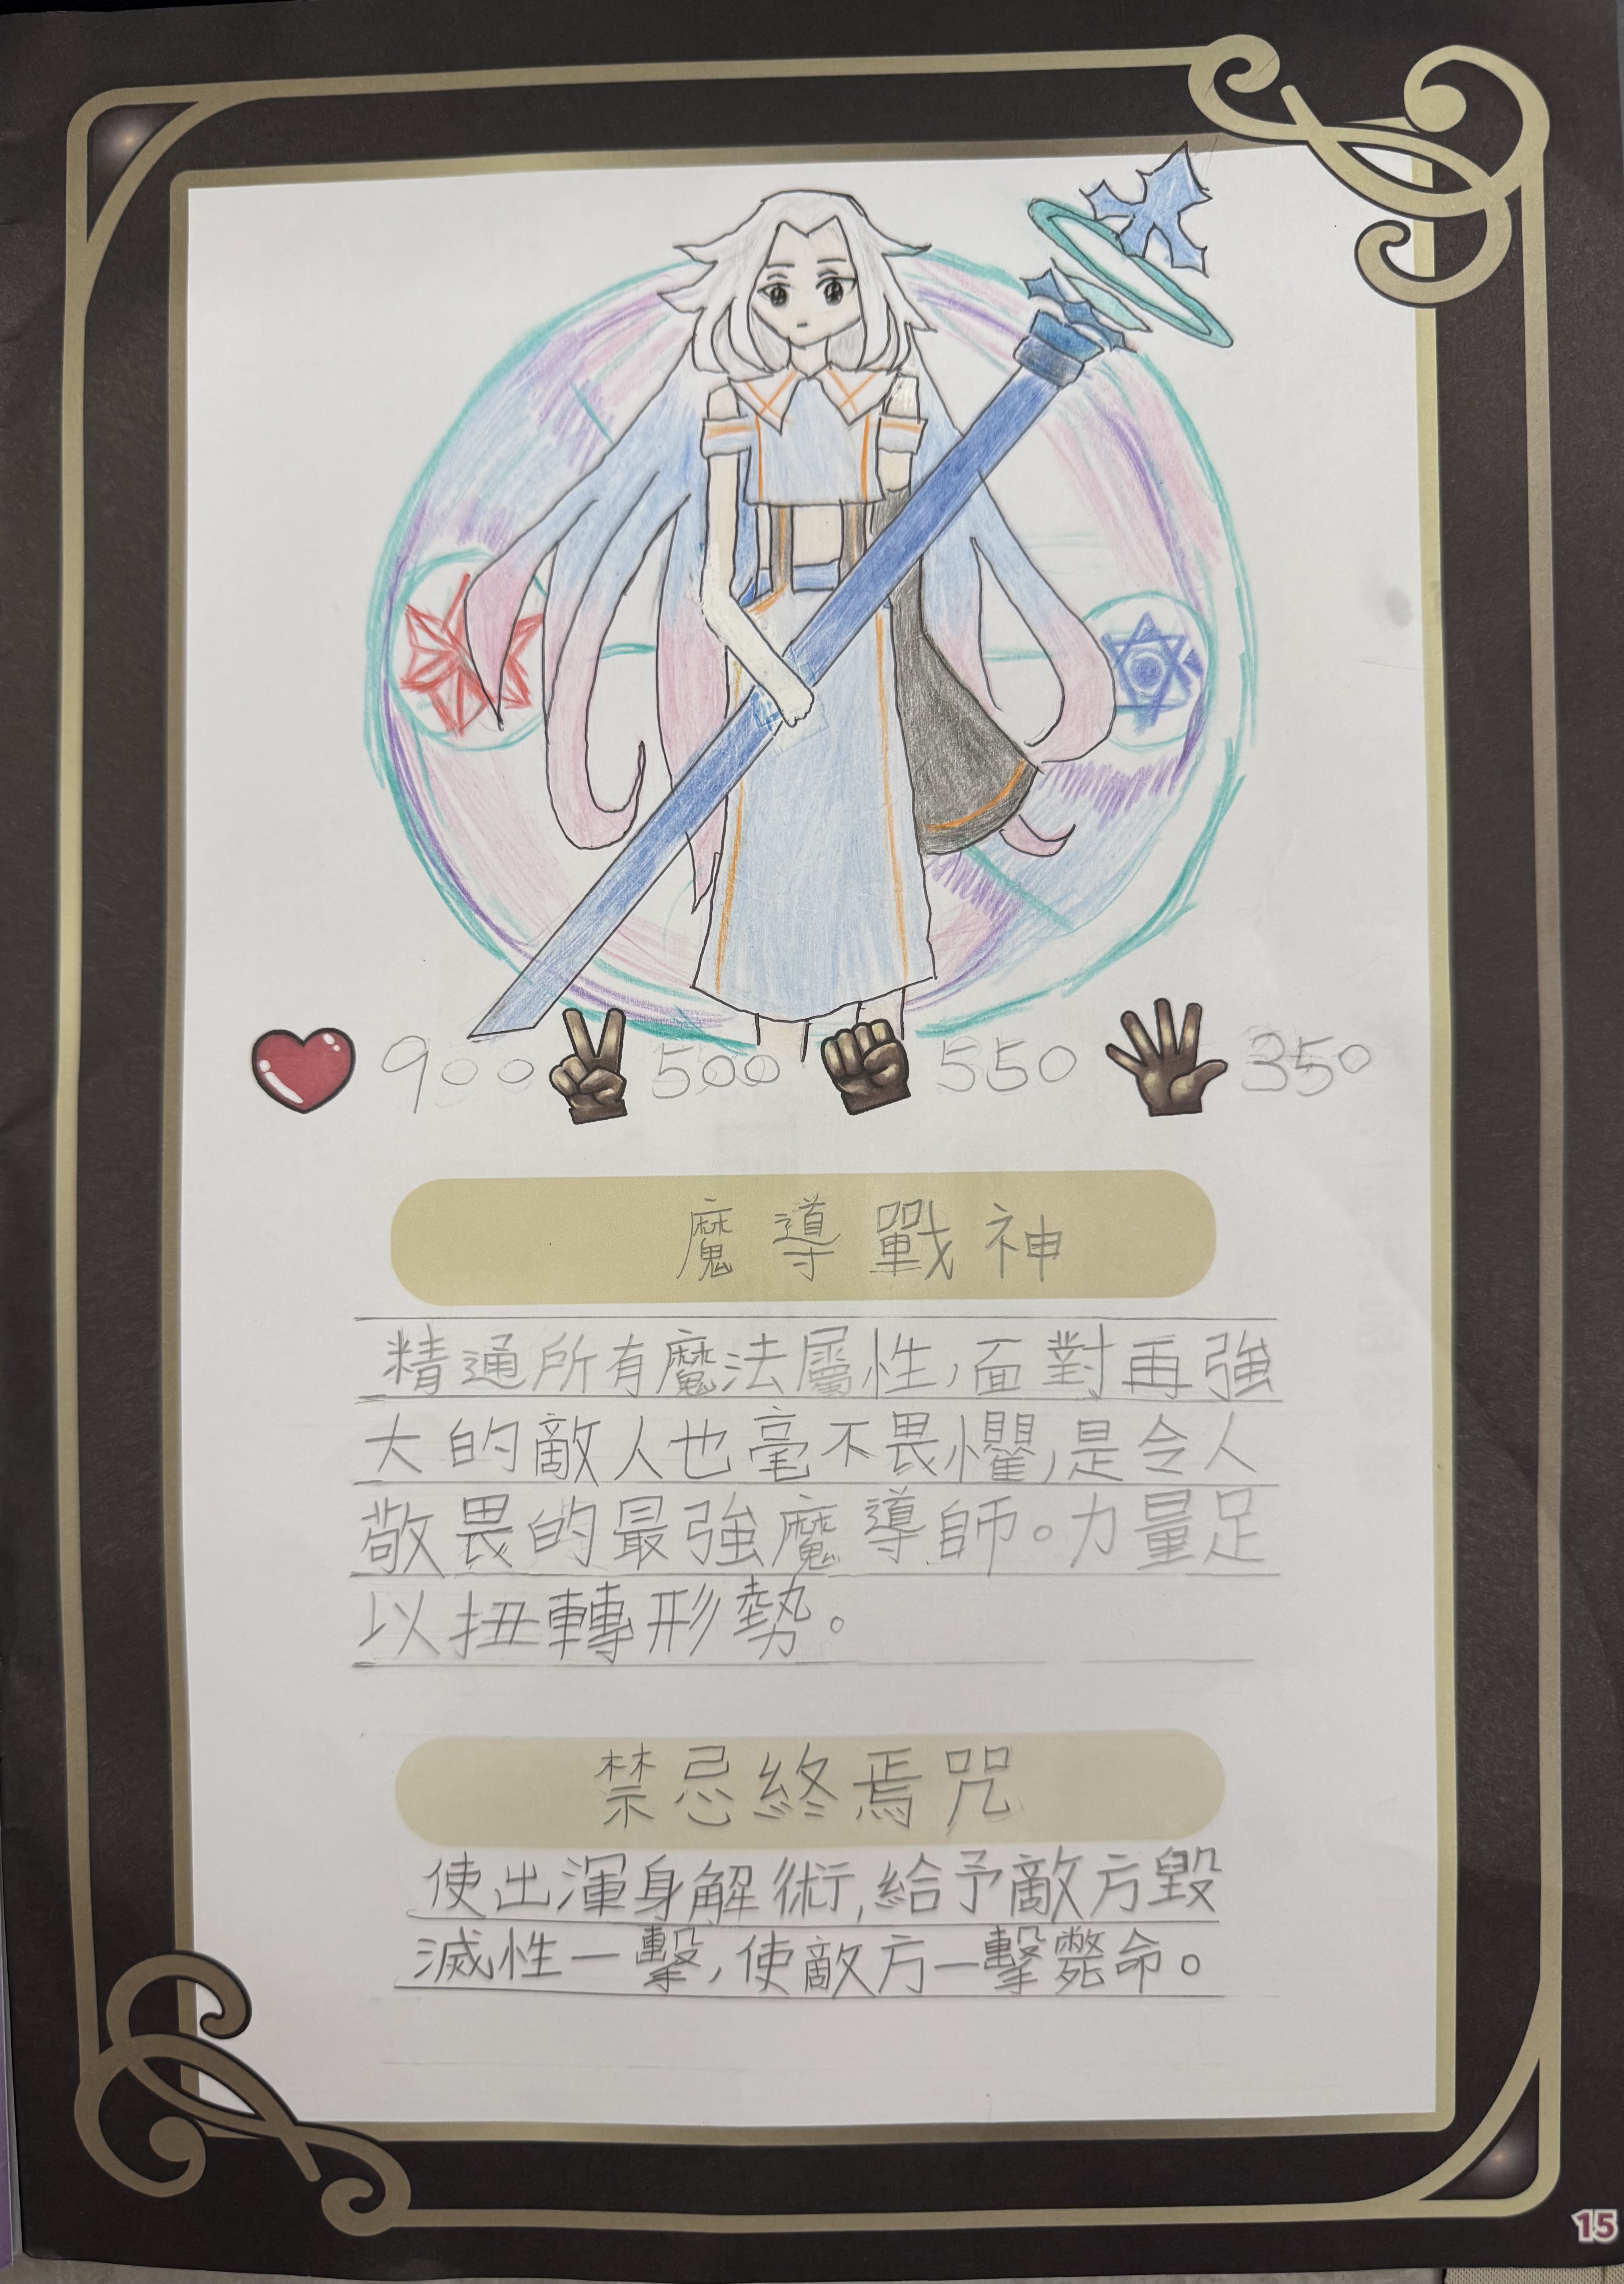 900 500 550 350
魔導戰神
精通所有魔法屬性,面對再強
大的敵人也毫不畏懼,是令人
敬畏的最強魔導師。力量足
以扭轉形勢。
禁忌終焉咒
使出渾身解術,給予敵方毀
滅性一擊,使敵方一擊斃命。
15